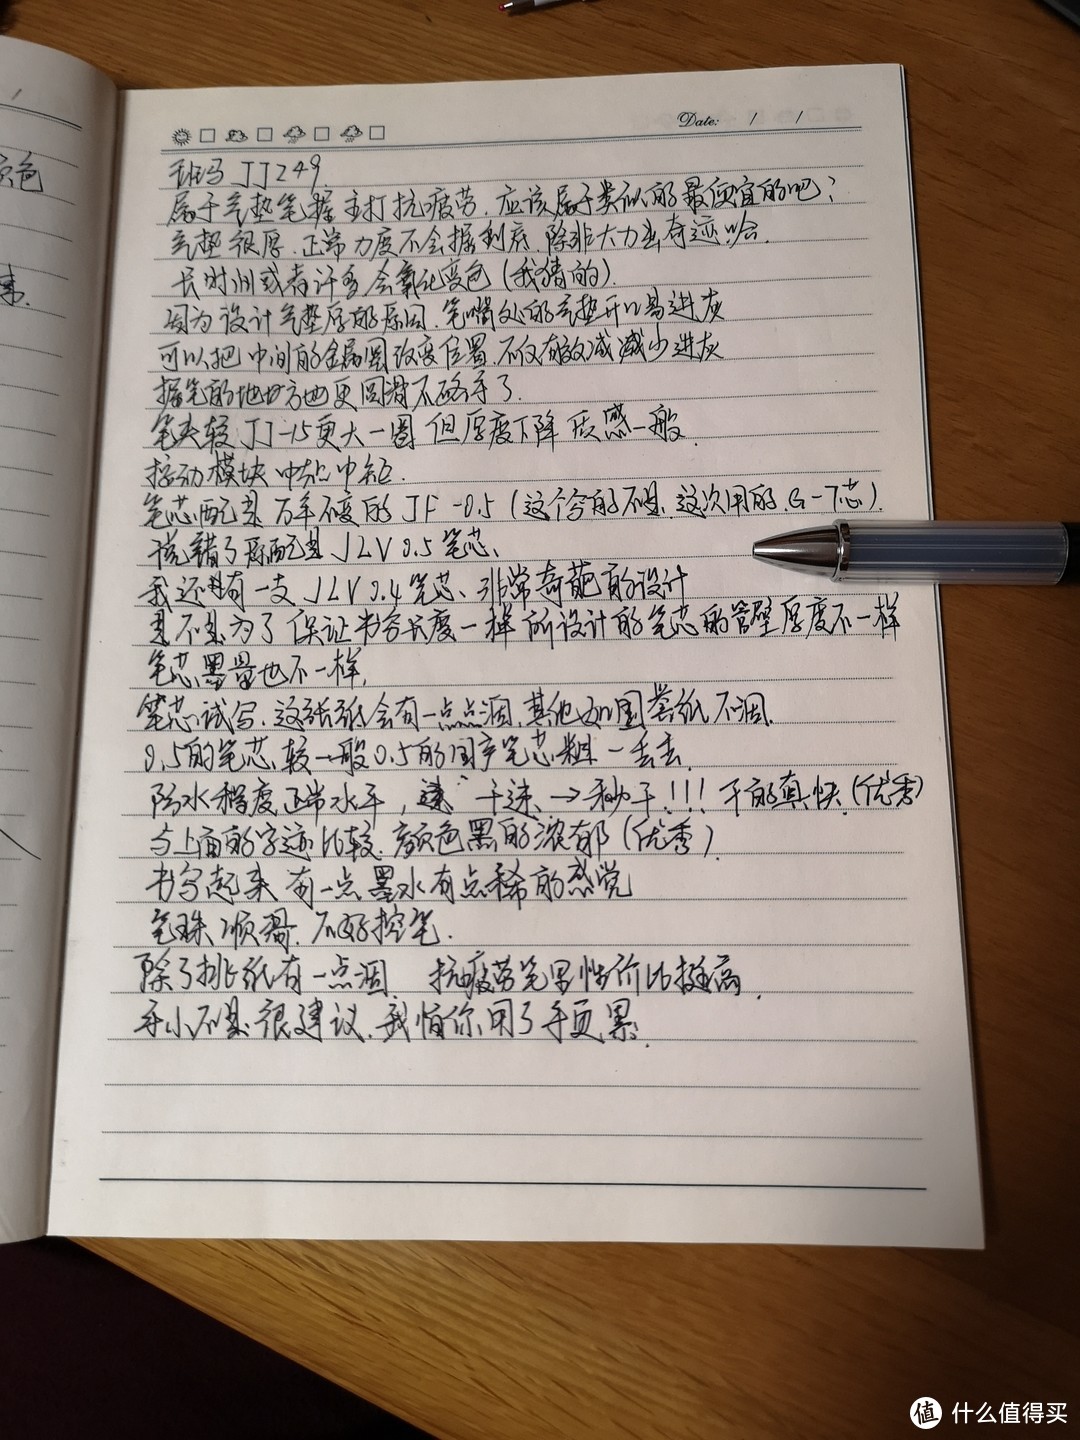 色
Date: / /
斑马 JJ249
属于气垫笔握 主打抗疲劳. 应该属于类似的最便宜的吧?
气垫很厚. 正常力度不会握到底 除非大力出奇迹哈.
长时间或者许多会氧化变色(我猜的).
因为设计气垫厚的原因. 笔嘴处的气垫开口易进灰
可以把中间的金属圈改变位置. 不仅有效减减少进灰
握笔的地地方也更圆滑不硌手了.
笔夹较JJ-15更大一圈 但厚度下降 质感一般.
按动模块中规中矩.
笔芯配是万年不变的JF-0.5(这个夸的不是.这次用的.G-7芯).
说错了原配是 JLV 0.5笔芯.
我还有一支JLV0.4笔芯、非常奇葩的设计
是不是为了保证书写长度一样所设计的笔芯的管壁厚度不一样
笔芯墨量也不一样.
笔芯试写.这张纸会有一点点洇.其他如国誉纸不洇.
0.5的笔芯.较一般0.5的国产笔芯.粗一丢丢.
防水程度正常水平, 干速.→秒干!!! 干的真快.(优秀)
与上面的字迹比较. 颜色黑的浓郁(优秀).
书写起来 有一点墨水有点稀的感觉
笔珠顺滑. 不好控笔.
除了挑纸有一点洇 抗疲劳笔里性价比挺高.
手小不是很建议.我怕你用了手更累.
值 什么值得买